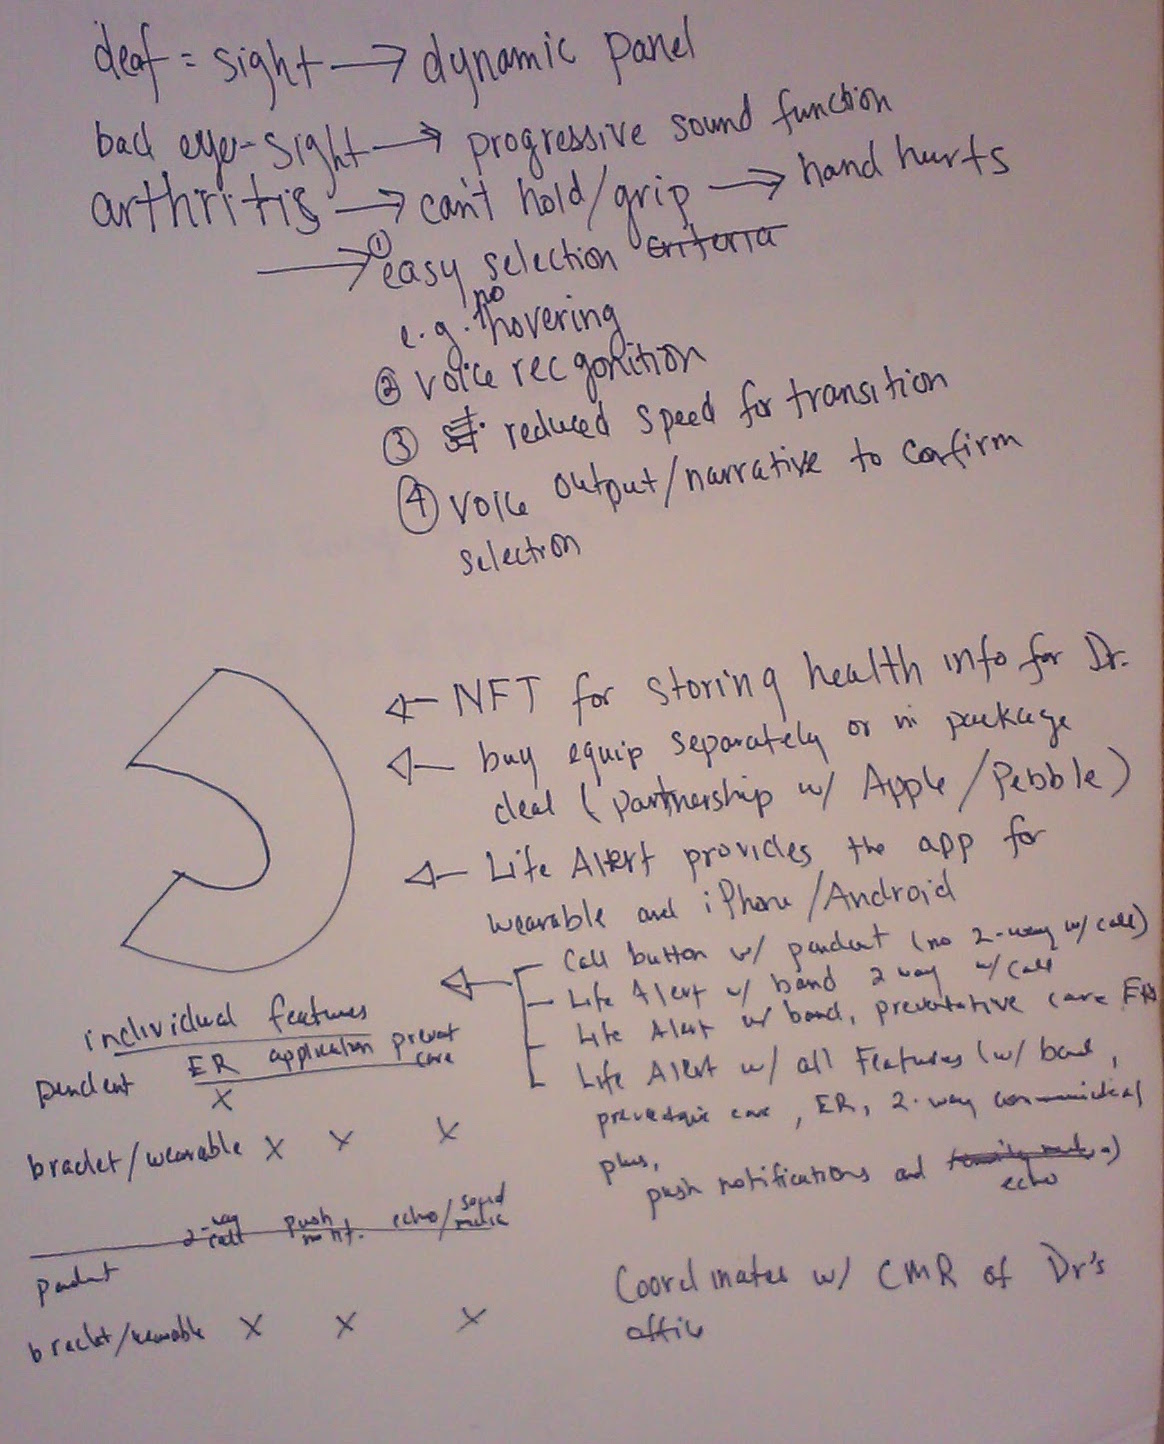 deaf = sight → dynamic panel
bad eye-sight → progressive sound function
arthritis → can't hold/grip → hand hurts
→ ① easy selection criteria
e.g. no hovering
② voice recgonition
③ reduced speed for transition
④ voice output/narrative to confirm
selection
NFT for storing health info for Dr.
buy equip separately or in package
deal (partnership w/ Apple/Pebble)
Life Alert provides the app for
wearable and iPhone/Android
Call button w/ pendent (no 2-way w/ call)
Life Alert w/ band 2 way w/ call
Life Alert w/ band, preventative care ER
Life Alert w/ all Features (w/ band,
care, ER, 2-way
plus,
push notifications and echo
individual features
ER application prevent care
pendent X
braclet/wearable X X X
2-way call push notif. echo/
pendent
braclet/wearable X X X
Coordinates w/ CMR of Dr's
office